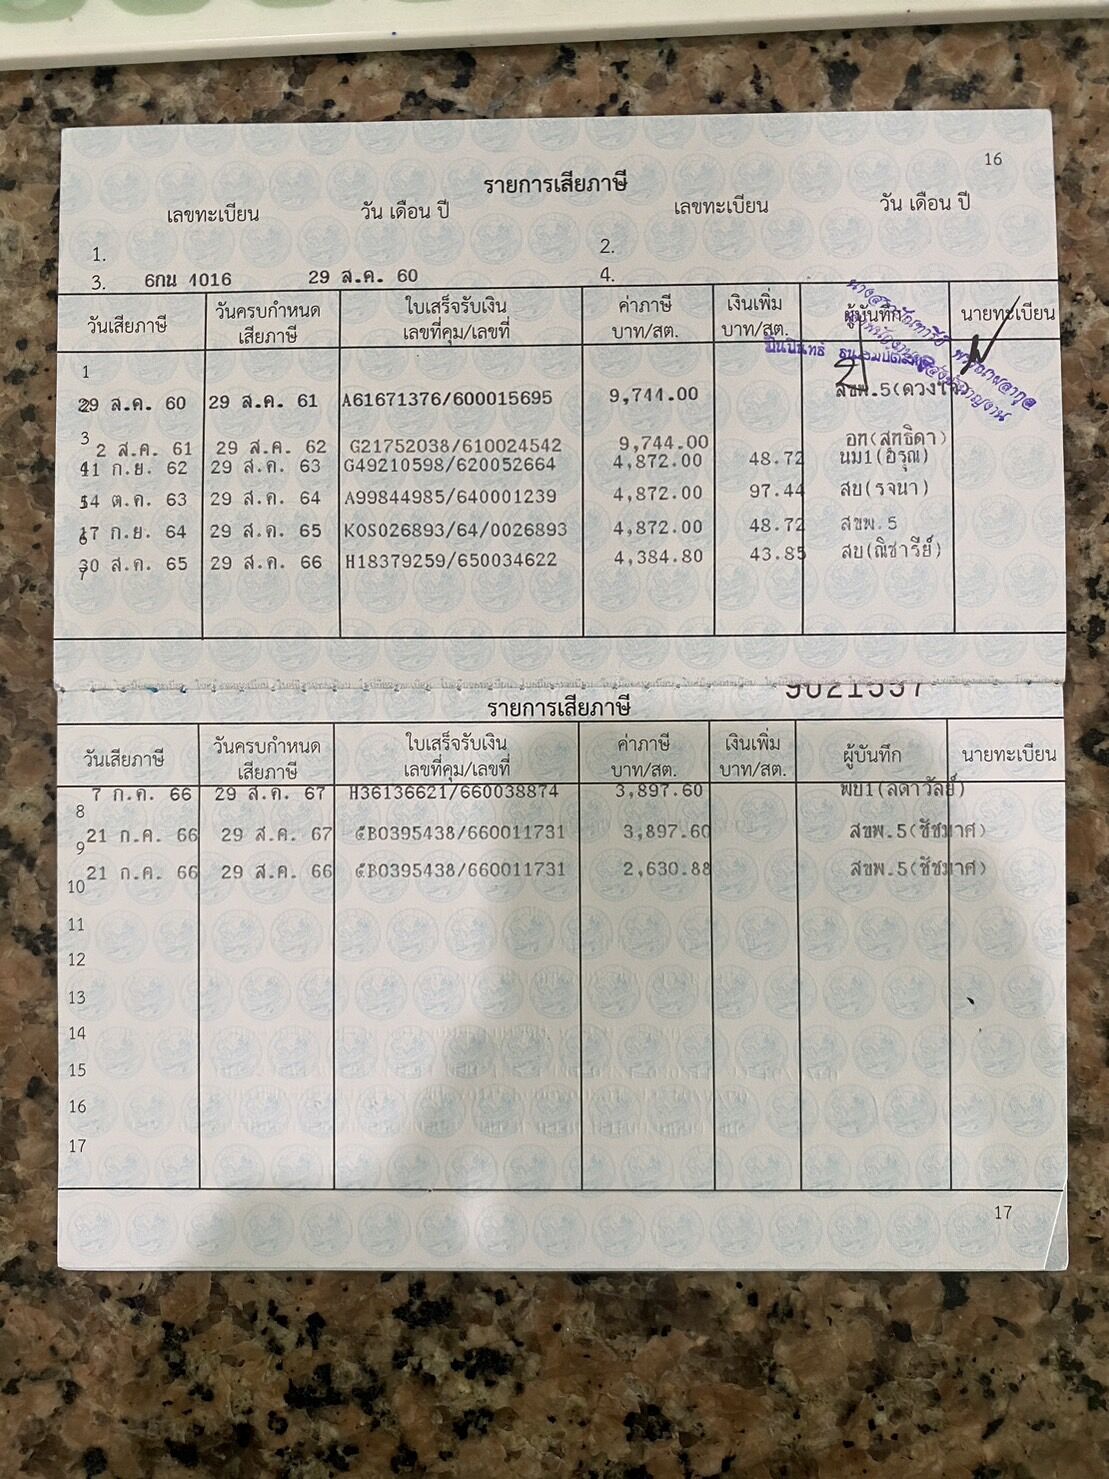 16
รายการเสียภาษี
เลขทะเบียน วัน เดือน ปี เลขทะเบียน วัน เดือน ปี
1. 2.
3. 6กน 1016 29 ส.ค. 60 4.
วันเสียภาษี วันครบกำหนดเสียภาษี ใบเสร็จรับเงิน เลขที่คุม/เลขที่ ค่าภาษี บาท/สต. เงินเพิ่ม บาท/สต. ผู้บันทึก นายทะเบียน
1
2 29 ส.ค. 60 29 ส.ค. 61 A61671376/600015695 9,744.00 สขพ.5(ดวงใจ)
3 2 ส.ค. 61 29 ส.ค. 62 G21752038/610024542 9,744.00 อท(สุทธิดา)
4 11 ก.ย. 62 29 ส.ค. 63 G49210598/620052664 4,872.00 48.72 นม1(อิรุณ)
5 14 ต.ค. 63 29 ส.ค. 64 A99844985/640001239 4,872.00 97.44 สบ(รจนา)
6 17 ก.ย. 64 29 ส.ค. 65 KOS026893/64/0026893 4,872.00 48.72 สขพ.5
7 30 ส.ค. 65 29 ส.ค. 66 H18379259/650034622 4,384.80 43.85 สบ(ณิชารีย์)
9021557
รายการเสียภาษี
วันเสียภาษี วันครบกำหนดเสียภาษี ใบเสร็จรับเงิน เลขที่คุม/เลขที่ ค่าภาษี บาท/สต. เงินเพิ่ม บาท/สต. ผู้บันทึก นายทะเบียน
8 7 ก.ค. 66 29 ส.ค. 67 H36136621/660038874 3,897.60 พบ1(ลดาวัลย์)
9 21 ก.ค. 66 29 ส.ค. 67 ๕B0395438/660011731 3,897.60 สขพ.5(ชัชมาศ)
10 21 ก.ค. 66 29 ส.ค. 66 ๕B0395438/660011731 2,630.88 สขพ.5(ชัชมาศ)
11
12
13
14
15
16
17
17